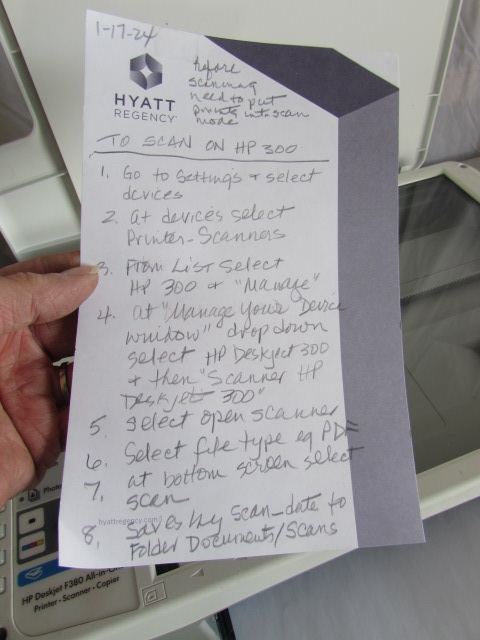 1-17-24
before
scanning
need to put
printer into scan
mode
HYATT
REGENCY
TO SCAN ON HP 300
1. Go to Settings + select
devices
2. at devices select
Printer-Scanners
3. From List select
HP 300 + "Manage"
4. at "Manage Your Device
window" drop down
select HP Deskject 300
+ then "Scanner HP
Deskjet 300"
5. select open scanner
6. Select file type eg PDF
7. at bottom screen select
scan
hyattregency.com
8. Saves by scan_date to
Folder Documents/Scans
Photo
HP Deskjet F380 All-in-O
Printer • Scanner • Copier